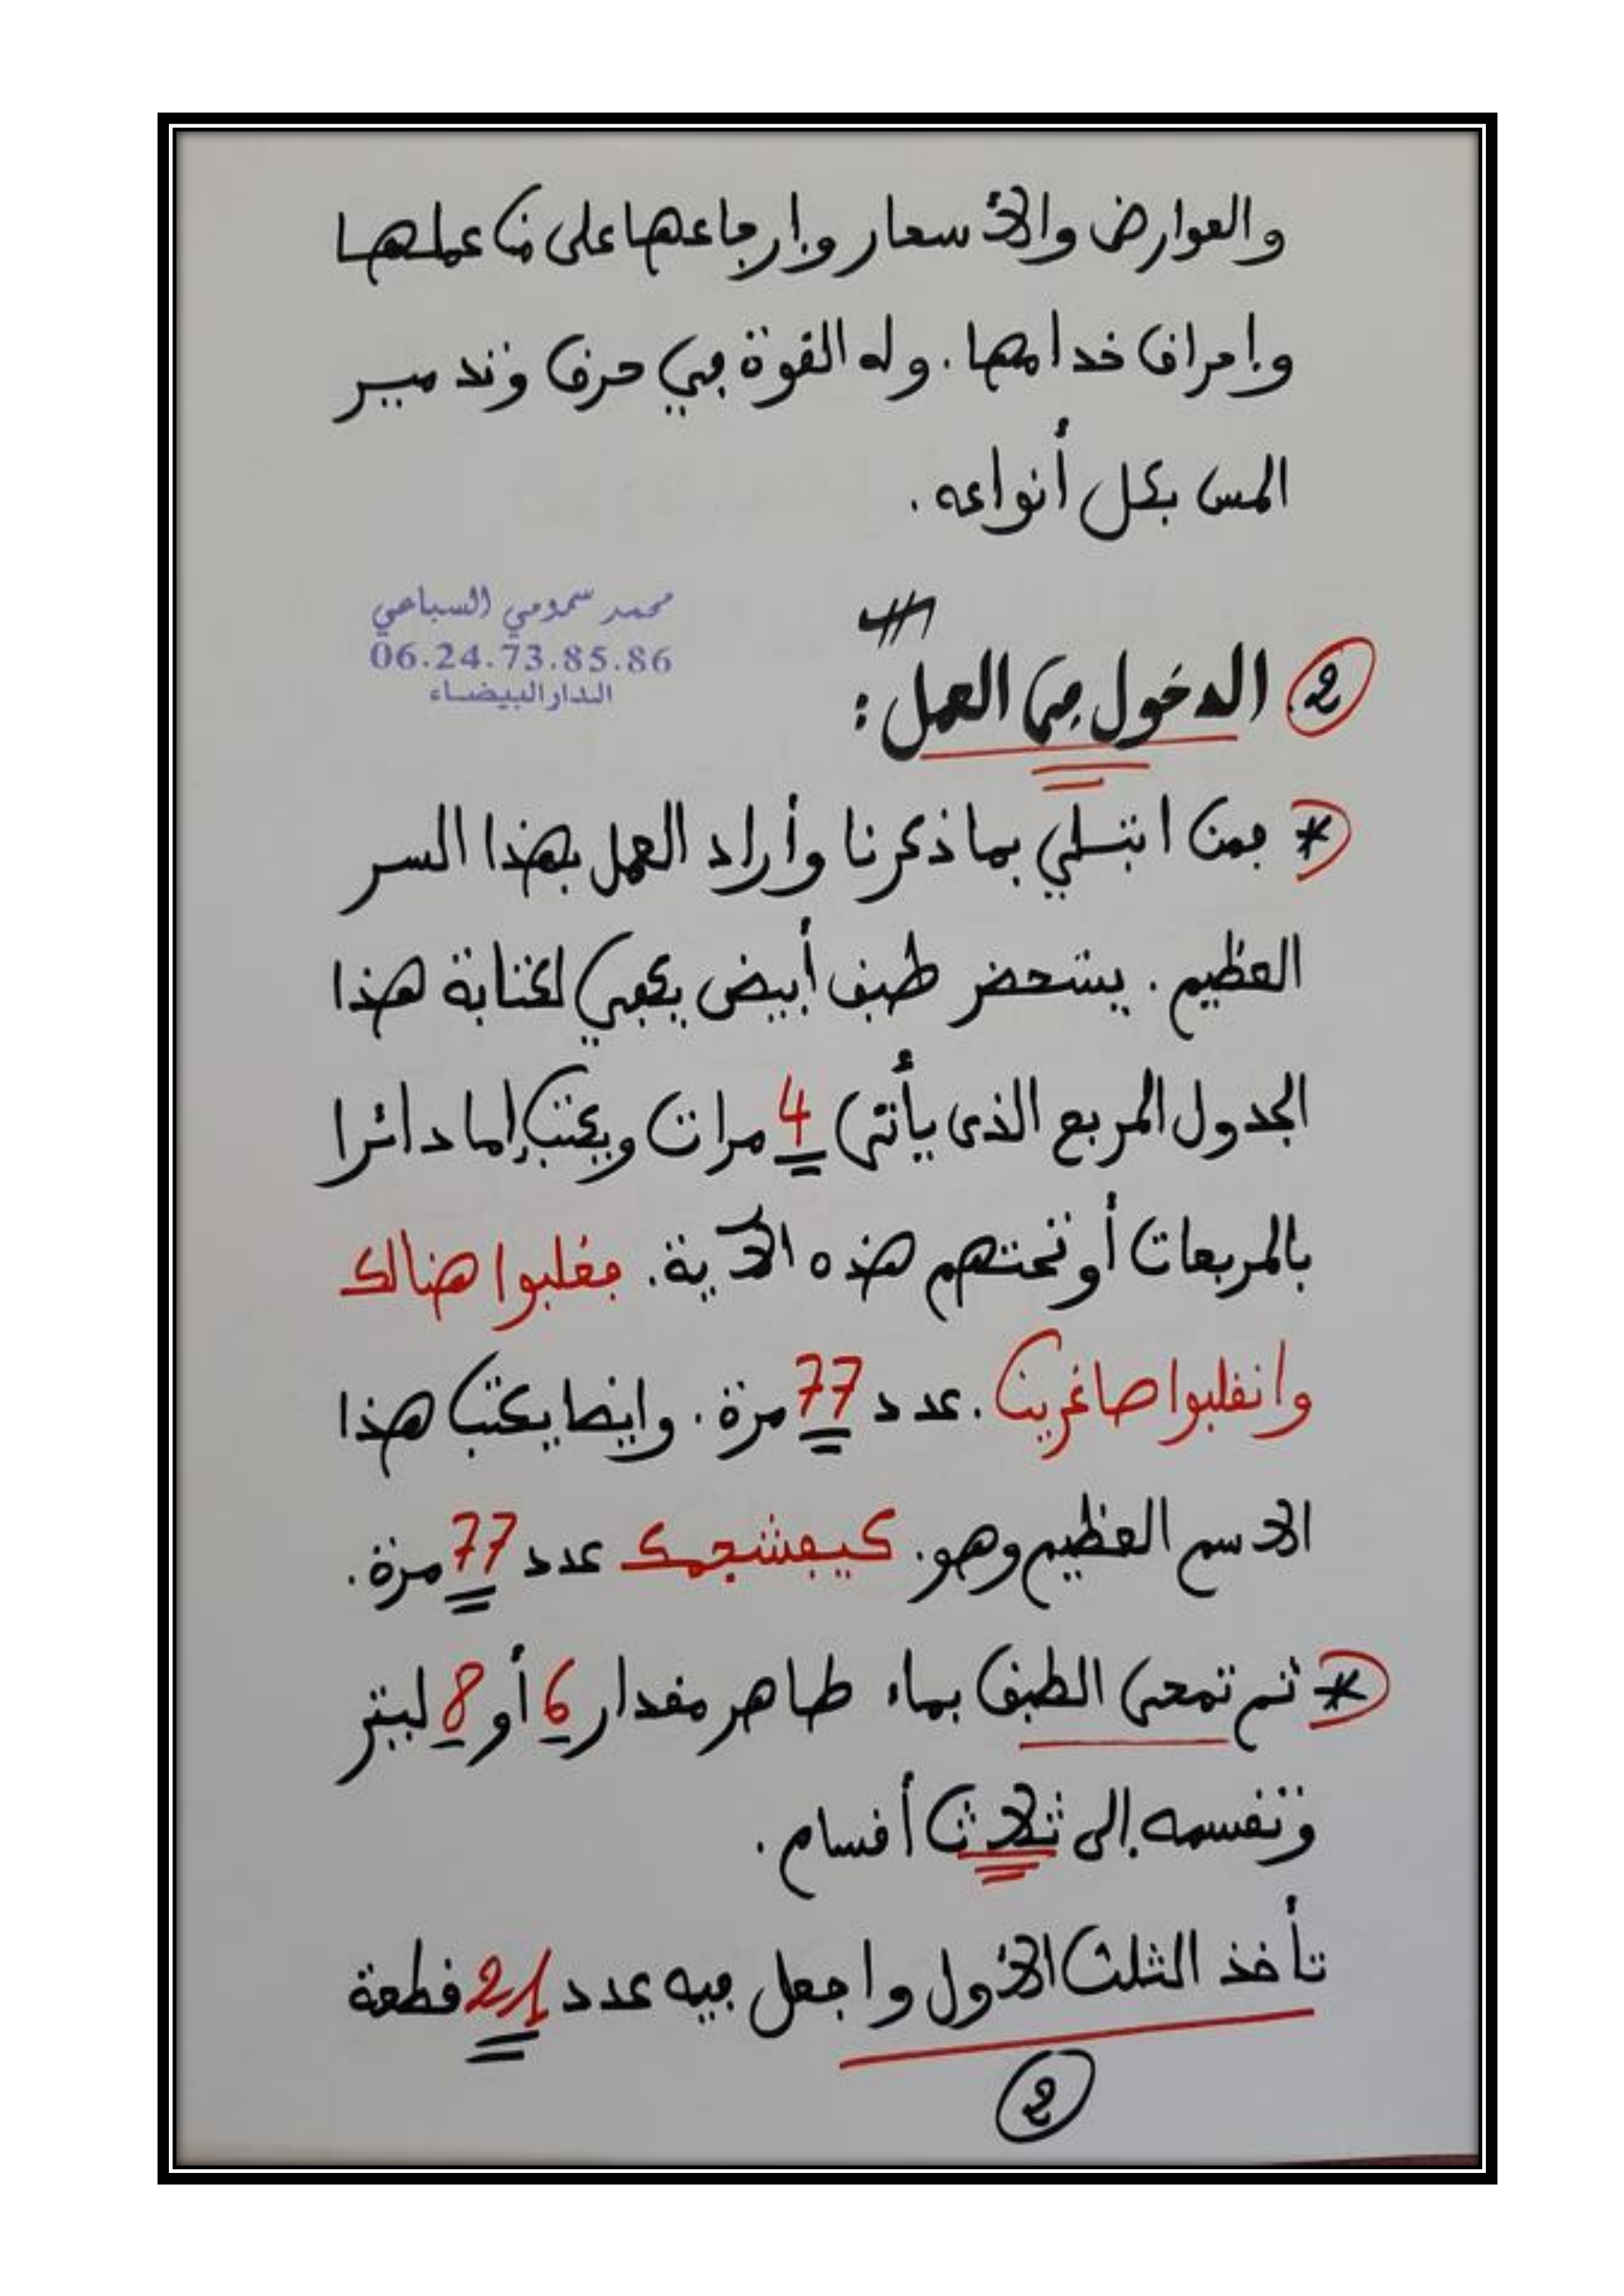 والعوارض والأسحار وإرجاعها على من عملها
وإحراق خدامها. وله القوة في حرق وتدمير
المس بكل أنواعه.
محمد سمومي السباعي
06.24.73.85.86
الدار البيضاء
2 الدخول في العمل:
* فمن ابتلي بما ذكرنا وأراد العمل بهذا السر
العظيم. يستحضر طبق أبيض يكفي لكتابة هذا
الجدول المربع الذي يأتي 4 مرات ويكتب إما دائرا
بالمربعات أو تحتهم هذه الآية. فغلبوا هنالك
وانقلبوا صاغرين. عدد 77 مرة. وايضا يكتب هذا
الاسم العظيم وهو. كيفشجمك عدد 77 مرة.
* ثم تمحى الطبق بماء طاهر مقدار 6 أو 8 ليتر
وتقسمه إلى ثلاث أقسام.
تأخذ الثلث الأول واجعل فيه عدد 21 قطعة
2